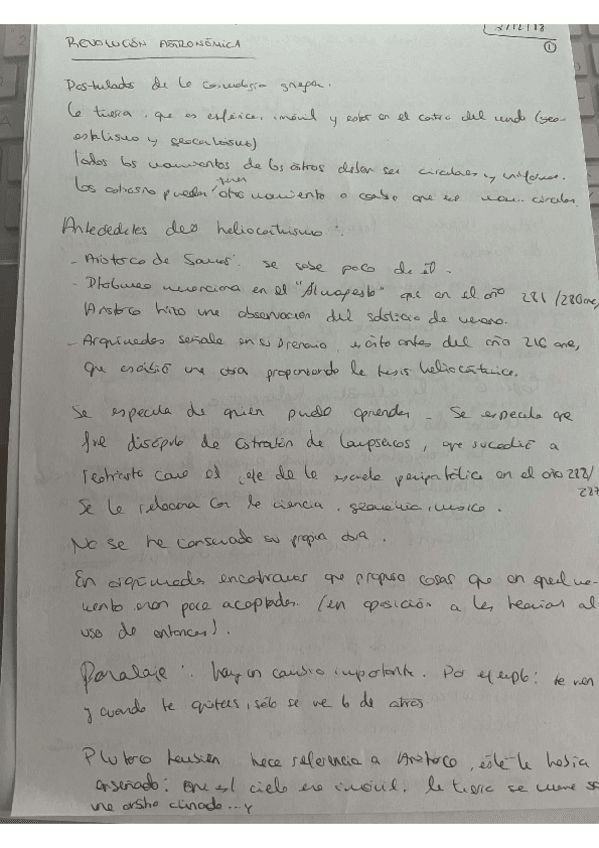 2/12/18
①
REVOLUCIÓN ASTRONÓMICA
Postulados de la cosmología griega.
La tierra, que es esférica, inmóvil y está en el centro del mundo (geo-
estatismo y geocentrismo)
Todos los movimientos de los astros deben ser circulares y uniformes.
Los astros no pueden tener otro movimiento o cambio que el mov. circular.
Antecedentes del heliocentrismo:
- Aristarco de Samos: se sabe poco de él.
- Ptolomeo menciona en el "Almagesto" que en el año 281/280 ane,
Aristarco hizo una observación del solsticio de verano.
- Arquímedes señala en su Arenario, escrito antes del año 216 ane,
que escribió una obra proponiendo la tesis heliocéntrica.
Se especula de quien pudo aprender - Se especula que
fue discípulo de Estratón de Lampsacos, que sucedió a
Teofrasto como el jefe de la escuela peripatética en el año 288/
287
Se le relaciona con la ciencia, geometría, música.
No se ha conservado su propia obra.
En Arquímedes encontramos que propuso cosas que en aquel mo-
mento eran poco aceptadas. (en oposición a las teorías al
uso de entonces).
Paralaje: hay un cambio importante. Por ejemplo: te ven
y cuando te quitas, sólo se ve lo de atrás
Plutarco también hace referencia a Aristarco, éste le había
enseñado: que el cielo era inmóvil. la tierra se mueve s
una